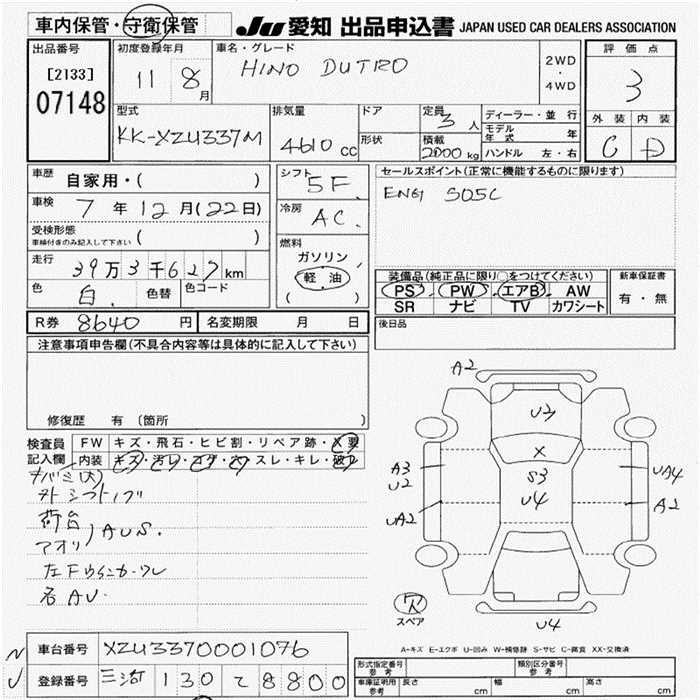 車内保管・守衛保管
JU 愛知 出品申込書 JAPAN USED CAR DEALERS ASSOCIATION
出品番号
[2133]
07148
初度登録年月
11 8月
車名・グレード
HINO DUTRO
2WD
・
4WD
評価点
3
外装 内装
C D
型式
KK-XZU337M
排気量
4610 cc
ドア
形状
定員
3 人
積載
2000 kg
ディーラー・並行
モデル年式 年
ハンドル 左・右
車歴
自家用・( )
車検
7年12月(22日)
受検形態
車検付きのみ記入して下さい ( )
走行
39万3千627km
色
白.
色替
色コード
シフト
5F.
冷房
AC.
燃料
ガソリン
軽油
( )
セールスポイント(正常に機能するものに限ります)
ENG S05C
装備品(純正品に限り○をつけてください)
PS PW エアB AW
SR ナビ TV カワシート
新車保証書
有・無
R券 8640 円
名変期限 月 日
後日品
注意事項申告欄(不具合内容等は具体的に記入して下さい)
修復歴 有 (箇所 )
検査員
記入欄
FW キズ・飛石・ヒビ割・リペア跡・X要
内装 キズ・汚レ・コゲ・穴・スレ・キレ・破レ
外シフトノブ
荷台
アオリ
AUS.
左Fウインカーワレ
A2
U3
X
S3
U4
A3
U2
UA2
UA4
A2
U4
スペア
A-キズ E-エクボ U-凹み W-補修跡 S-サビ C-腐食 XX-交換済
車台番号 XZU3370001076
登録番号 三河 130 て 8800
型式指定番号
参考
類別区分番号
参考
車庫証明用
参考
長さ cm
幅 cm
高さ cm